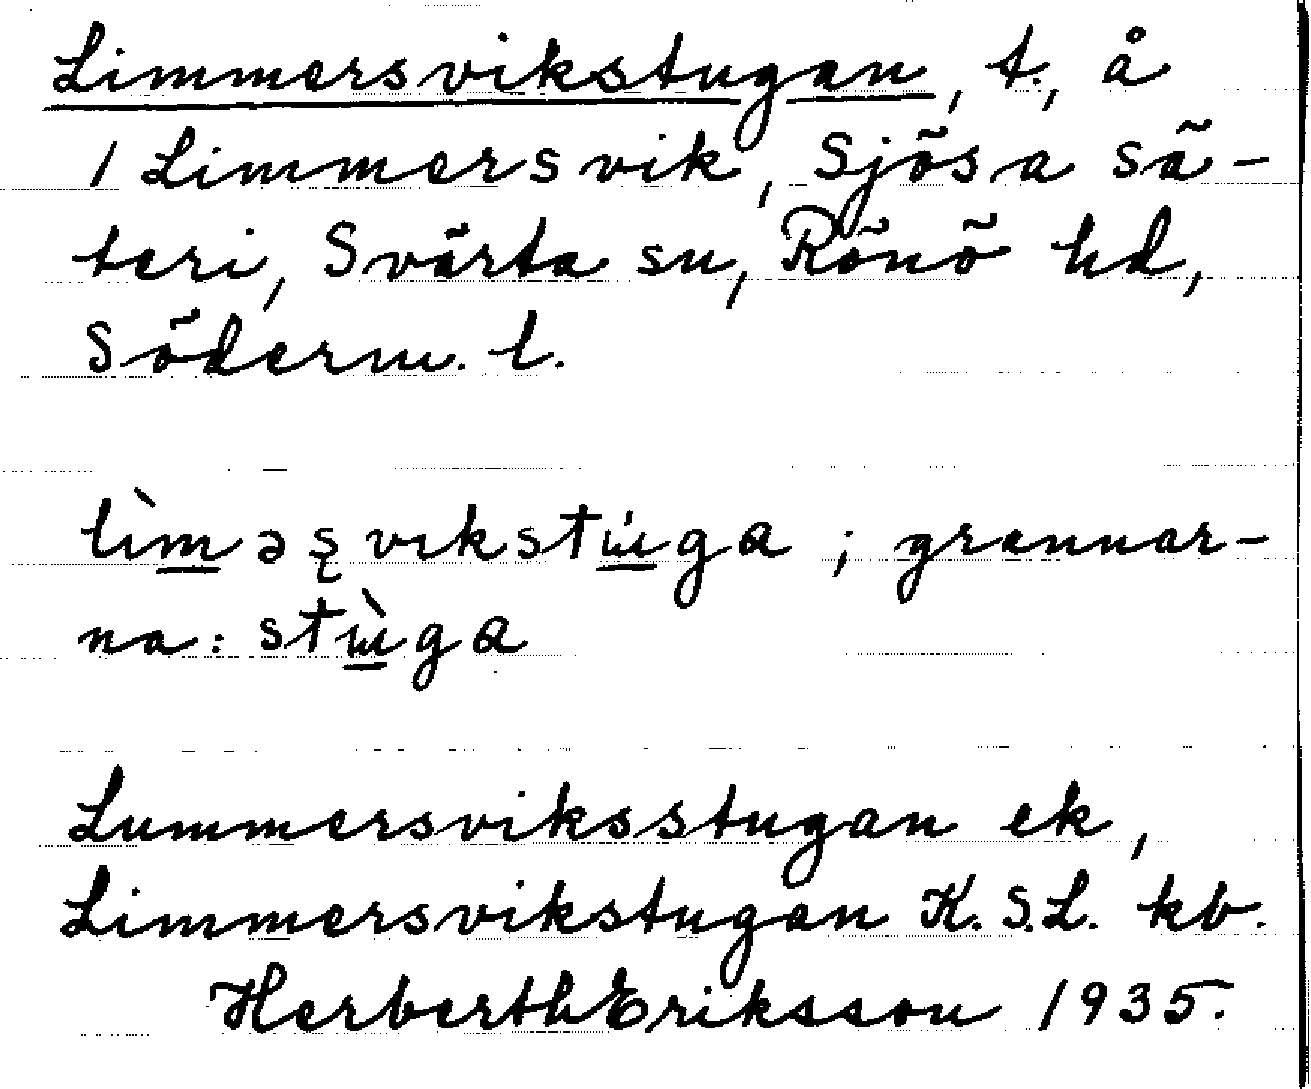 Limmersvikstugan, t., å
1 Limmersvik, Sjösa sä-
teri, Svärta sn, Rönö hd,
Söderm. l.
lìm̲əş vıkstɯ̲́ga ; grannar-
na: stɯ̲̀ga
Lummersviksstugan ek,
Limmersvikstugan K.S.L. kb.
Herberth Eriksson 1935.